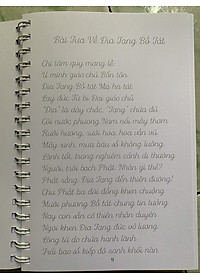 Bài Tựa Về Địa Tạng Bồ Tát
Chí tâm quy mạng lễ
U minh giáo chủ Bổn tôn
Địa Tạng Bồ Tát Ma ha tát
Lạy đức Từ bi Đại giáo chủ
"Địa" là dày chắc, "Tạng" chứa đủ
Cõi nước phương Nam nổi mây thơm
Rưới hương, rưới hoa, hoa vần vũ
Mây xinh, mưa báu số không lường
Lành tốt, trang nghiêm cảnh dị thường
Người, trời bạch Phật: Nhân gì thế?
Phật rằng: Địa Tạng đến thiên đường!
Chư Phật ba đời đồng khen chuộng
Mười phương Bồ Tát chung tin tưởng
Nay con sẵn có thiện nhân duyên
Ngợi khen Địa Tạng đức vô lượng
Lòng từ do chứa hạnh lành
Trải bao số kiếp độ sanh khỏi nàn
9